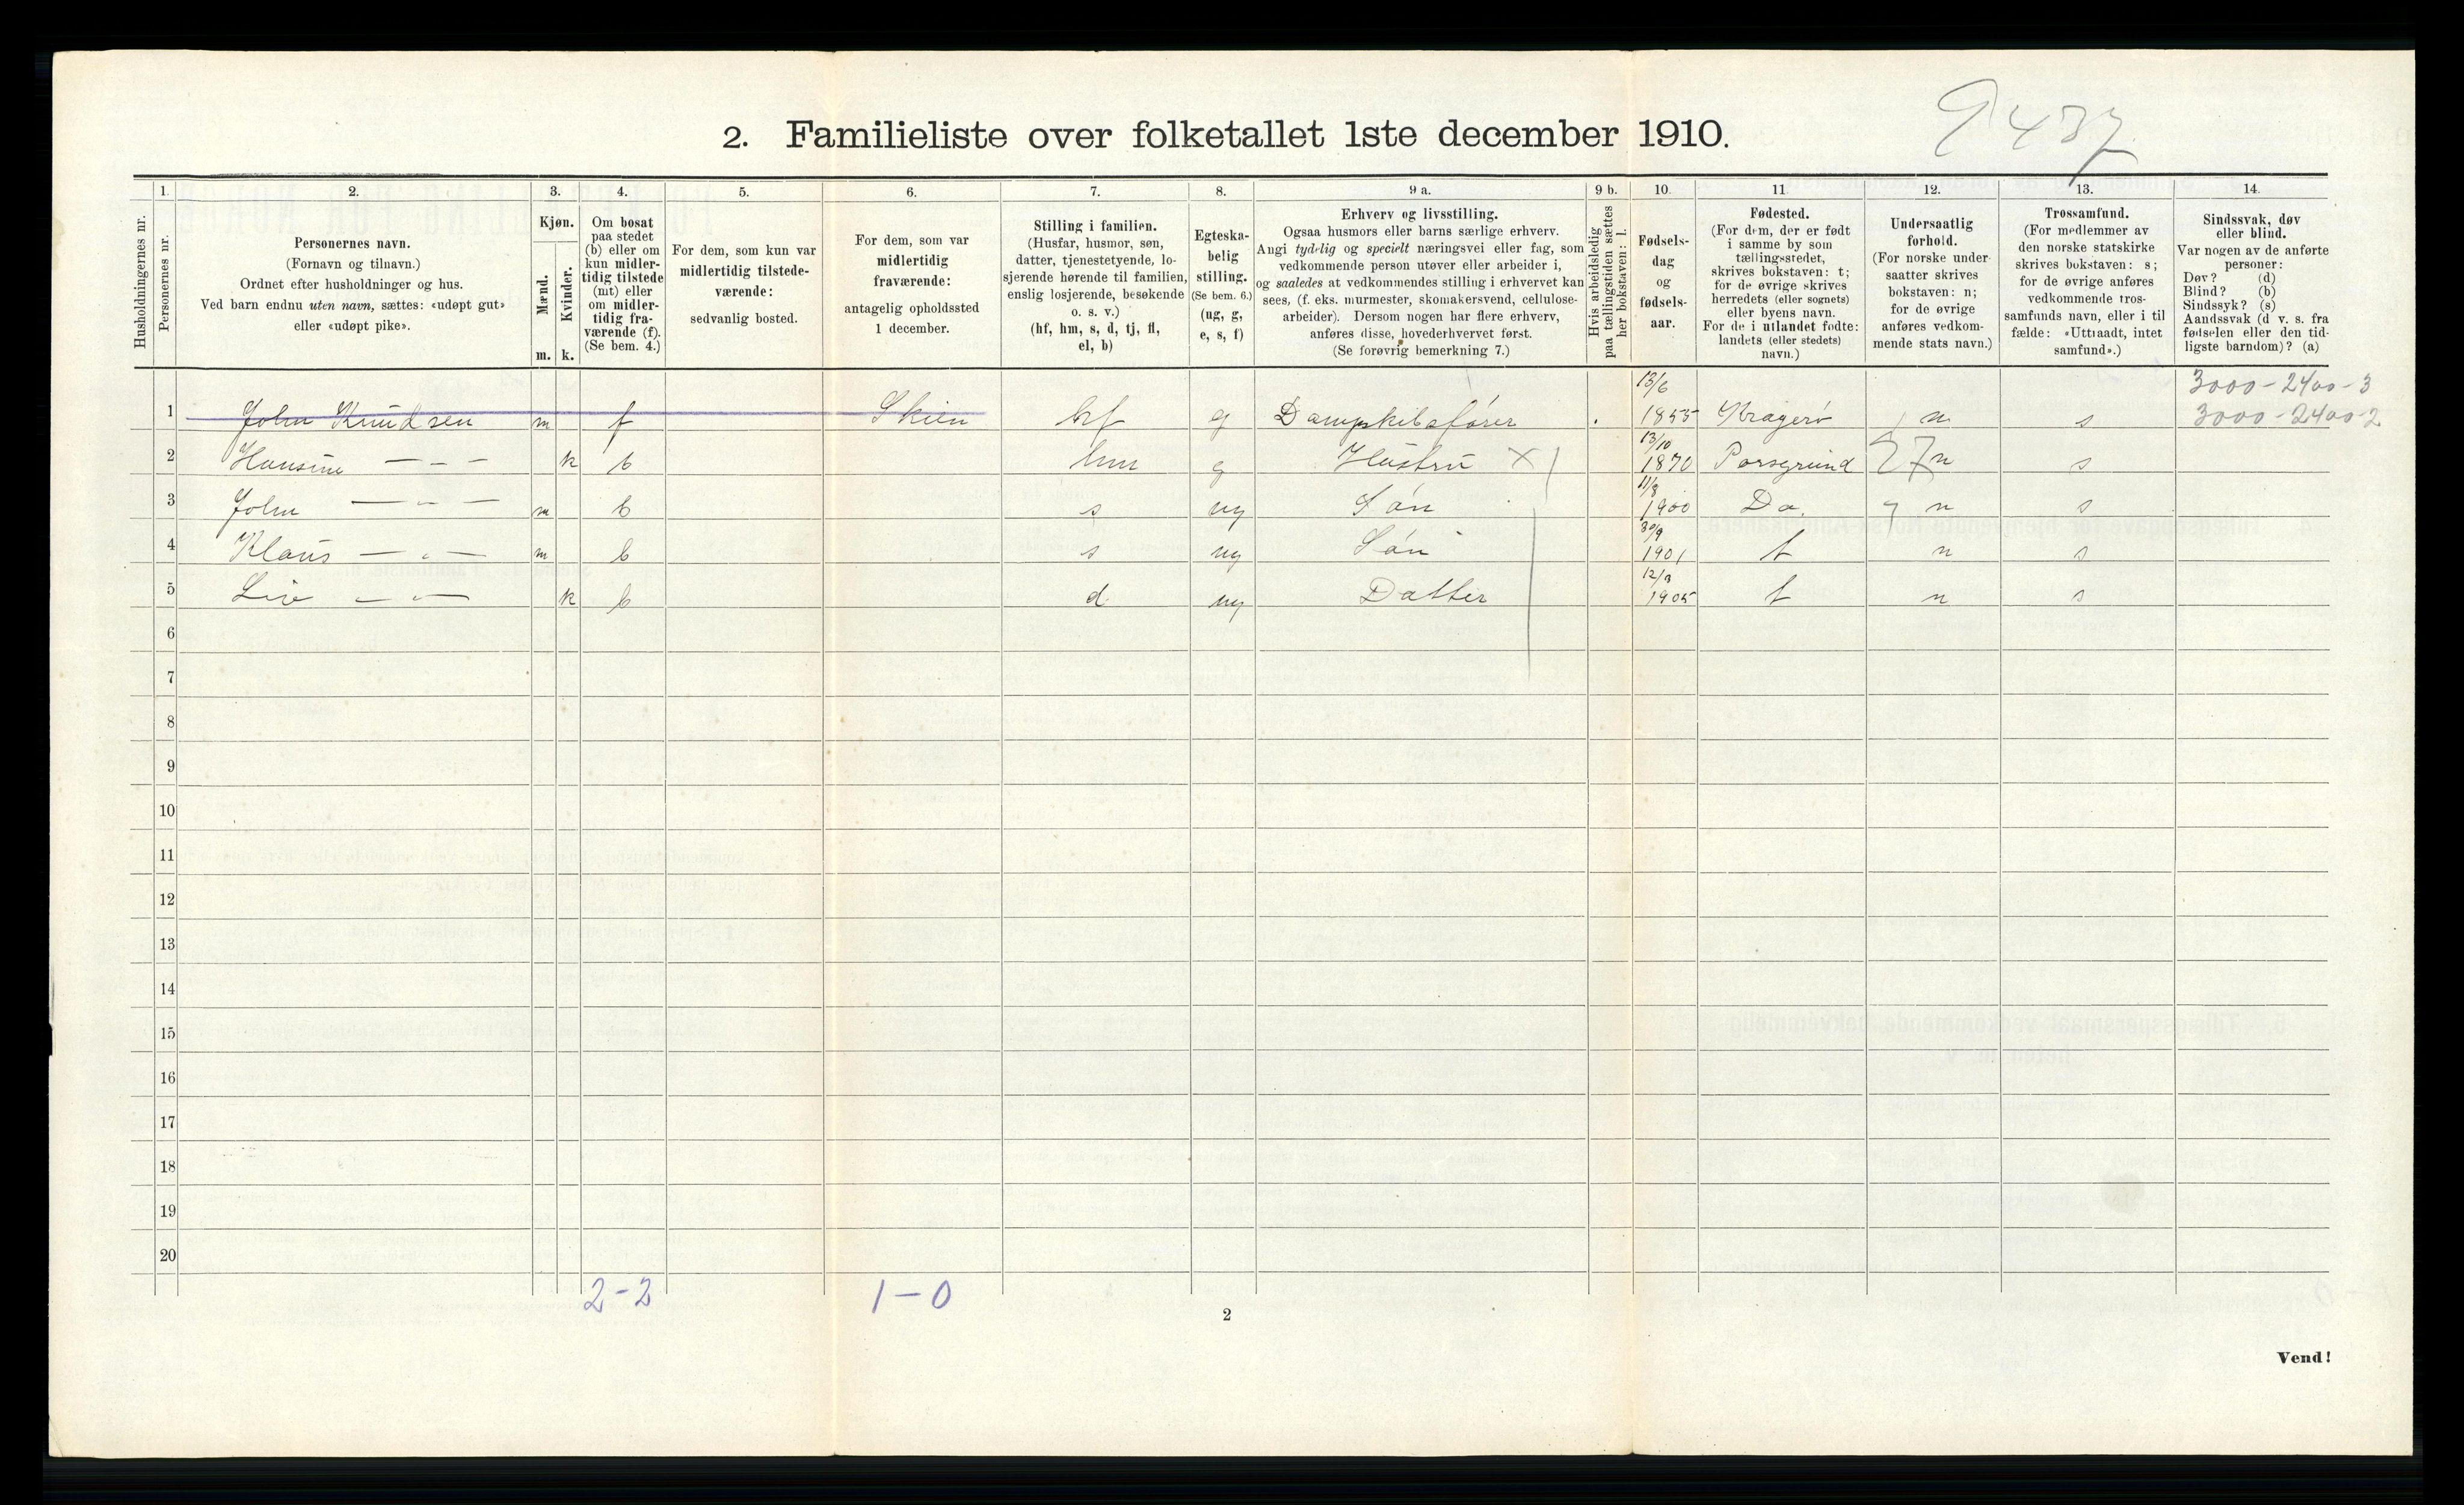 2. Familieliste over folketallet 1ste december 1910.
9437
1. 2. 3. 4. 5. 6. 7. 8. 9 a. 9 b. 10. 11. 12. 13. 14.
Husholdningernes nr.
Personernes nr.
Personernes navn.
(Fornavn og tilnavn.)
Ordnet efter husholdninger og hus.
Ved barn endnu uten navn, sættes: «udøpt gut»
eller «udøpt pike».
Kjøn.
Mænd.
Kvinder.
m. k.
Om bosat
paa stedet
(b) eller om
kun midler-
tidig tilstede
(mt) eller
om midler-
tidig fra-
værende (f).
(Se bem. 4.)
For dem, som kun var
midlertidig tilstede-
værende:
sedvanlig bosted.
For dem, som var
midlertidig
fraværende:
antagelig opholdssted
1 december.
Stilling i familien.
(Husfar, husmor, søn,
datter, tjenestetyende, lo-
sjerende hørende til familien,
enslig losjerende, besøkende
o. s. v.)
(hf, hm, s, d, tj, fl,
el, b)
Egteska-
belig
stilling.
(Se bem. 6.)
(ug, g,
e, s, f)
Erhverv og livsstilling.
Ogsaa husmors eller barns særlige erhverv.
Angi tydelig og specielt næringsvei eller fag, som
vedkommende person utøver eller arbeider i,
og saaledes at vedkommendes stilling i erhvervet kan
sees, (f. eks. murmester, skomakersvend, cellulose-
arbeider). Dersom nogen har flere erhverv,
anføres disse, hovederhvervet først.
(Se forøvrig bemerkning 7.)
Hvis arbeidsledig
paa tællingstiden sættes
her bokstaven: l.
Fødsels-
dag
og
fødsels-
aar.
Fødested.
(For dem, der er født
i samme by som
tællingsstedet,
skrives bokstaven: t;
for de øvrige skrives
herredets (eller sognets)
eller byens navn.
For de i utlandet fødte:
landets (eller stedets)
navn.)
Undersaatlig
forhold.
(For norske under-
saatter skrives
bokstaven: n;
for de øvrige
anføres vedkom-
mende stats navn.)
Trossamfund.
(For medlemmer av
den norske statskirke
skrives bokstaven: s;
for de øvrige anføres
vedkommende tros-
samfunds navn, eller i til-
fælde: «Uttraadt, intet
samfund».)
Sindssvak, døv
eller blind.
Var nogen av de anførte
personer:
Døv? (d)
Blind? (b)
Sindssyk? (s)
Aandssvak (d v. s. fra
fødselen eller den tid-
ligste barndom)? (a)
3000-2400-3
1 John Knudsen m f Skien hf g Dampskibsfører 13/6 1855 Kragerø n s 3000-2400-2
2 Hansine — " — k b hm g Hustru X 13/10 1870 Porsgrund 27 n s
3 John — " — m b s ug Søn 11/8 1900 Do. n s
4 Klaus — " — m b s ug Søn 30/9 1901 t n s
5 — " — k b d ug Datter 12/3 1905 t n s
6
7
8
9
10
11
12
13
14
15
16
17
18
19
20
2-2 1-0
2
Vend!